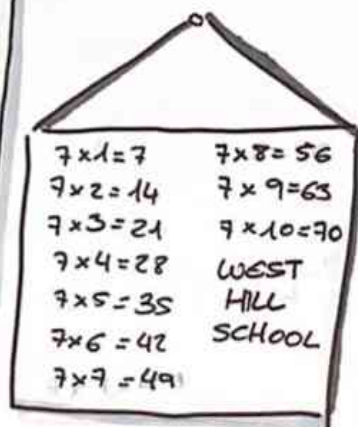 7×1=7
7×2=14
7×3=21
7×4=28
7×5=35
7×6=42
7×7=49
7×8=56
7×9=63
7×10=70
WEST
HILL
SCHOOL